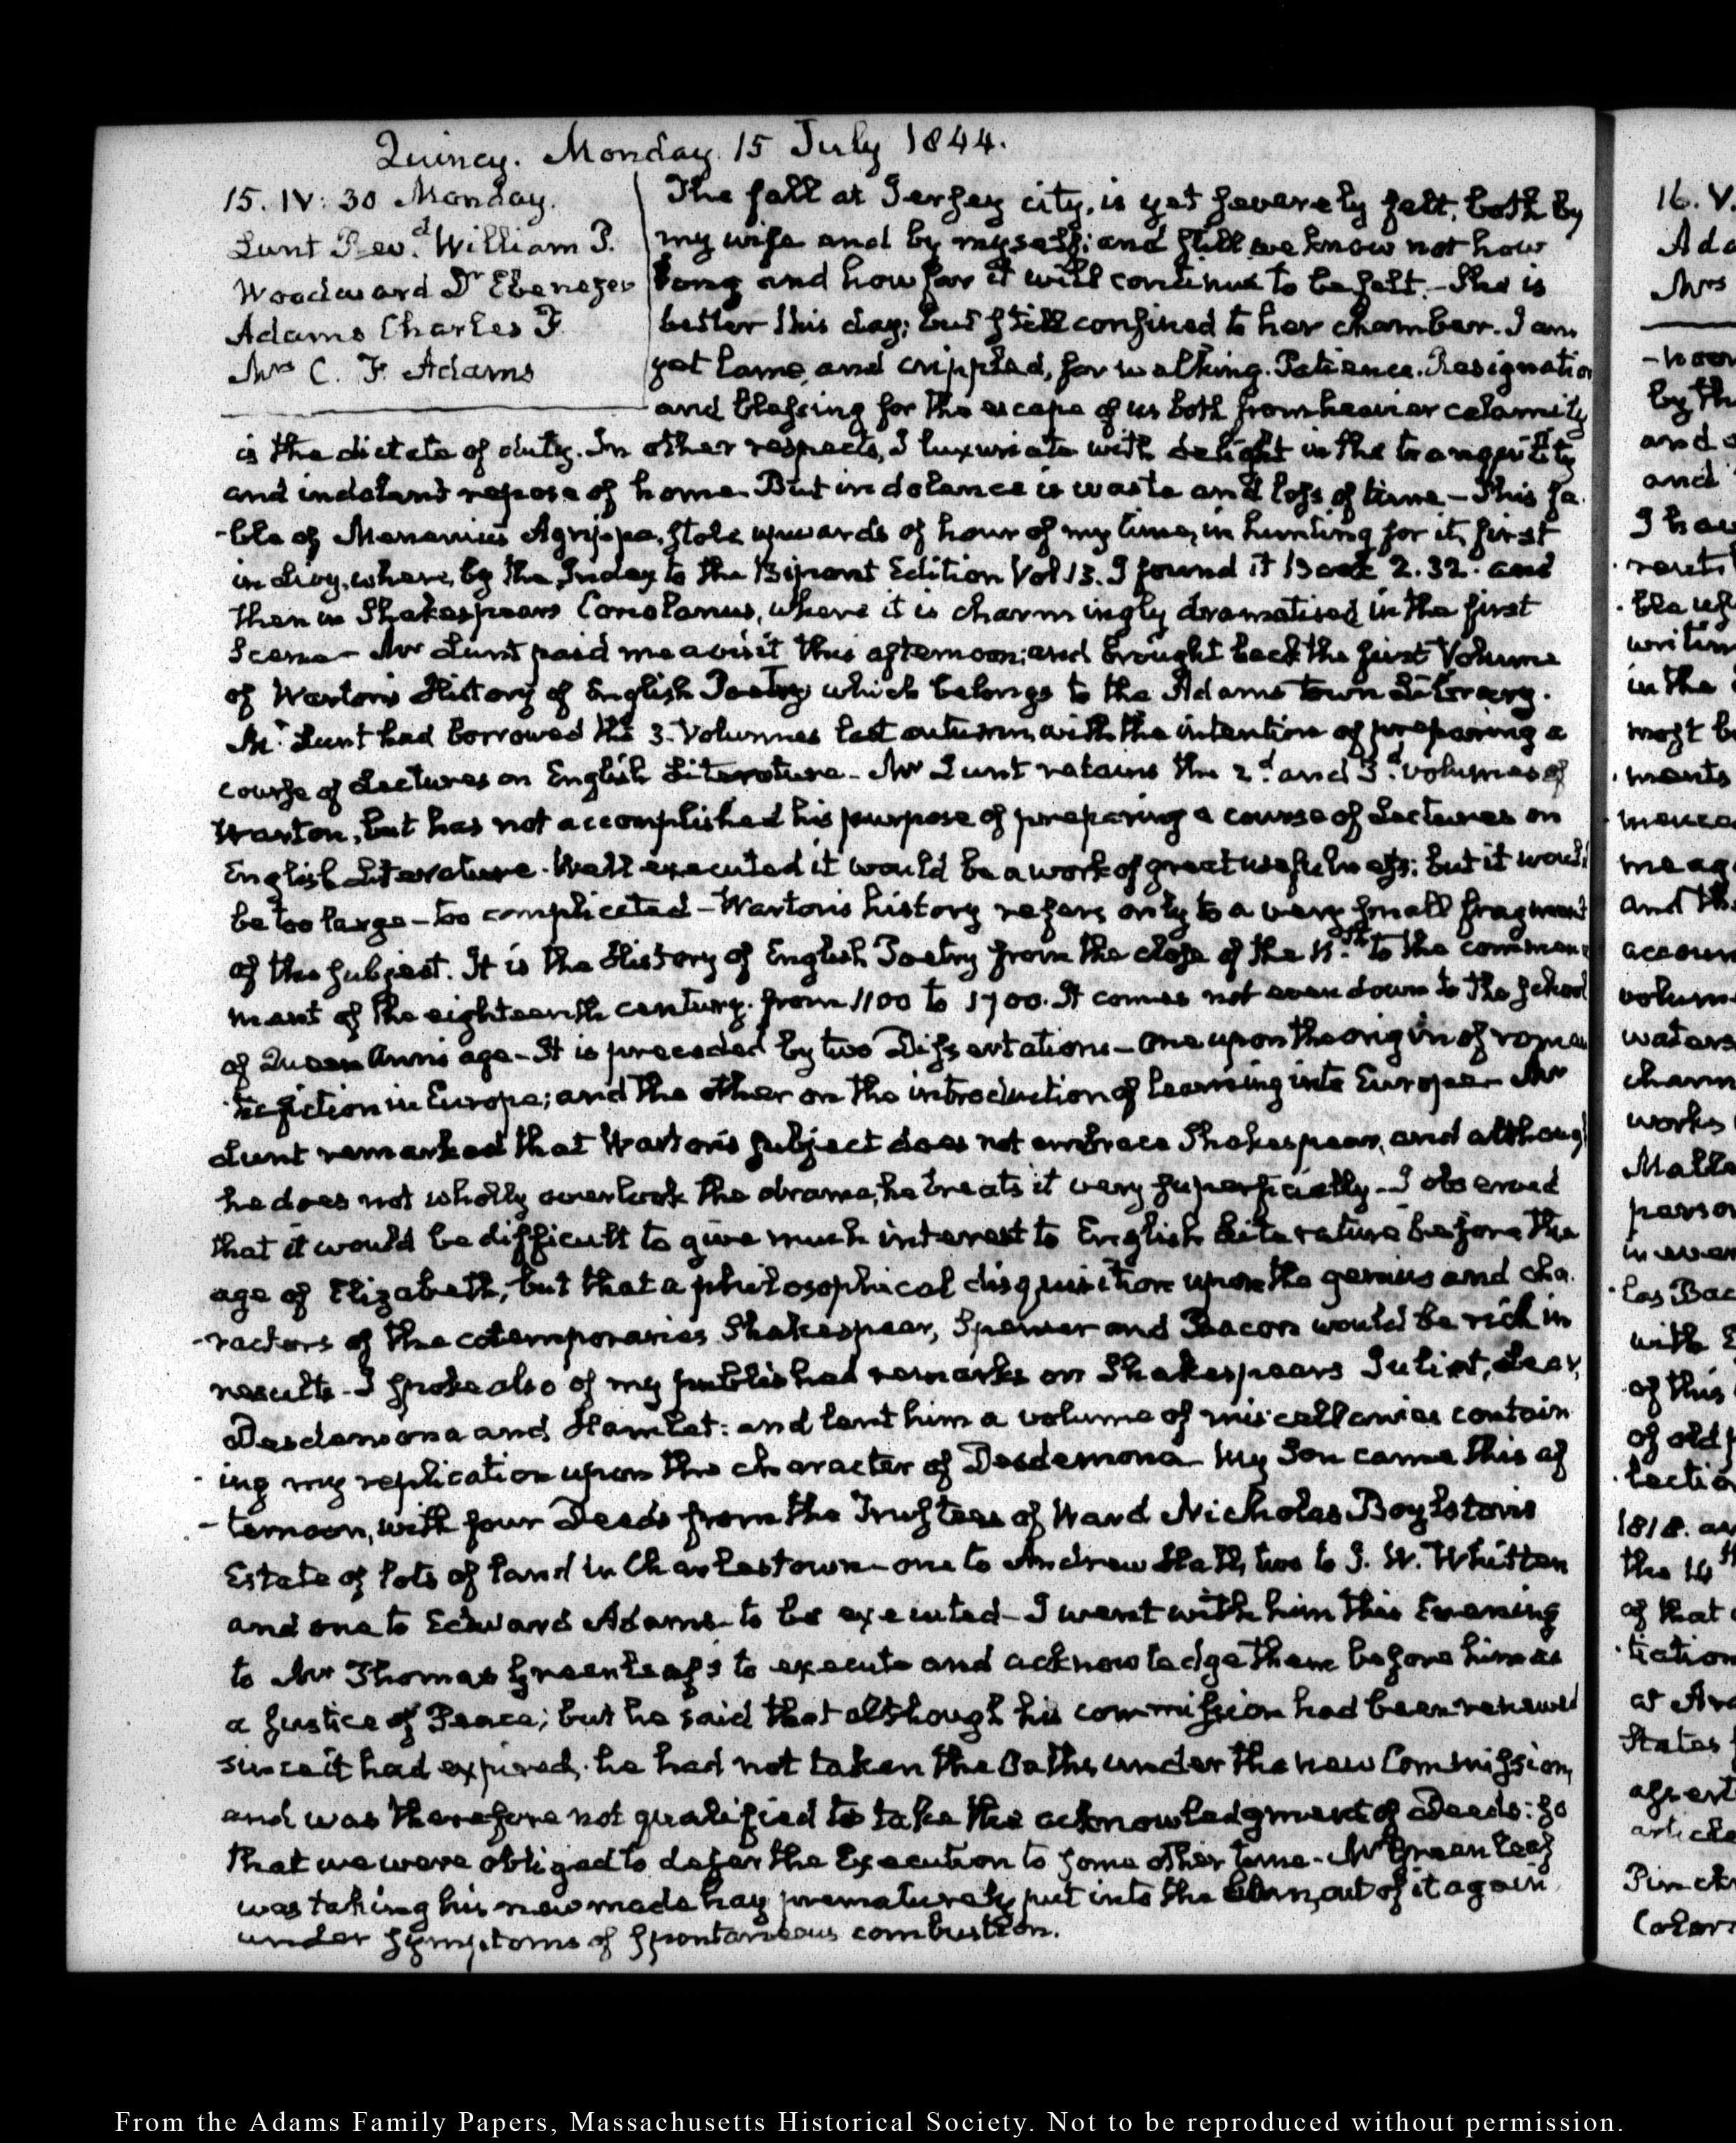 Quincy. Monday 15 July 1844.
15. IV: 30 Monday.
Lunt Revd. William P.
Woodward Dr Ebenezer
Adams Charles F.
Mrs C. F. Adams
The fall at Jersey city, is yet severely felt, both by
my wife and by myself; and still we know not how
long and how far it will continue to be felt. - She is
better this day; but still confined to her chamber. I am
yet lame, and crippled, for walking. Patience. Resignation
and blessing for the escape of us both from heavier calamity
is the dictate of duty. In other respects, I luxuriate with delight in the tranquility
and indolent repose of home. But indolence is waste and loss of time - This fa-
-ble of Menenius Agrippa, stole upwards of hour of my time, in hunting for it, first
in Livy, where, by the Index to the Bipont Edition Vol 13. I found it Book 2.32. and
then in Shakespears Coriolanus, where it is charmingly dramatised in the first
Scene - Mr Lunt paid me a visit this afternoon; and brought back the first Volume
of Warton's History of English Poetry which belongs to the Adams town Library.
Mr Lunt had borrowed the 3. Volumes last autumn, with the intention of preparing a
course of Lectures on English Literature - Mr Lunt retains the 2d. and 3d. volumes of
Warton, but has not accomplished his purpose of preparing a course of Lectures on
English Literature. Well executed it would be a work of great usefulness: but it would
be too large - too complicated - Warton's history refers only to a very small fragment
of the subject. It is the History of English Poetry from the close of the 11th. to the commence
ment of the eighteenth century. from 1100 to 1700. It comes not even down to the school
of Queen Ann's age - It is preceded by two Dissertations - One upon the origin of roman
tic fiction in Europe; and the other on the introduction of learning into Europe - Mr
Lunt remarked that Warton's subject does not embrace Shakespear, and although
he does not wholly overlook the drama, he treats it very superficially - I observed
that it would be difficult to give much interest to English Literature before the
age of Elizabeth, but that a philosophical disquisition upon the genius and cha-
-racters of the cotemporaries Shakespear, Spenser and Bacon would be rich in
results - I spoke also of my published remarks on Shakespears Juliet, Lear,
Desdemona and Hamlet: and lent him a volume of miscellanies contain
-ing my replication upon the character of Desdemona - My Son came this af
-ternoon, with four Deeds from the Trustees of Ward Nicholas Boylston's
Estate of lots of land in Charlestown - one to Andrew Hall, two to J. W. Whitten
and one to Edward Adams - to be executed - I went with him this Evening
to Mr Thomas Greenleaf's to execute and acknowledge them before him as
a Justice of Peace; but he said that although his commission had been renewed
since it had expired, he had not taken the Oaths under the new Commission,
and was therefore not qualified to take the acknowledgment of Deeds: so
that we were obliged to defer the Execution to some other time - Mr Greenleaf
was taking his new made hay prematurely put into the barn, out of it again
under symptoms of spontaneous combustion.
From the Adams Family Papers, Massachusetts Historical Society. Not to be reproduced without permission.